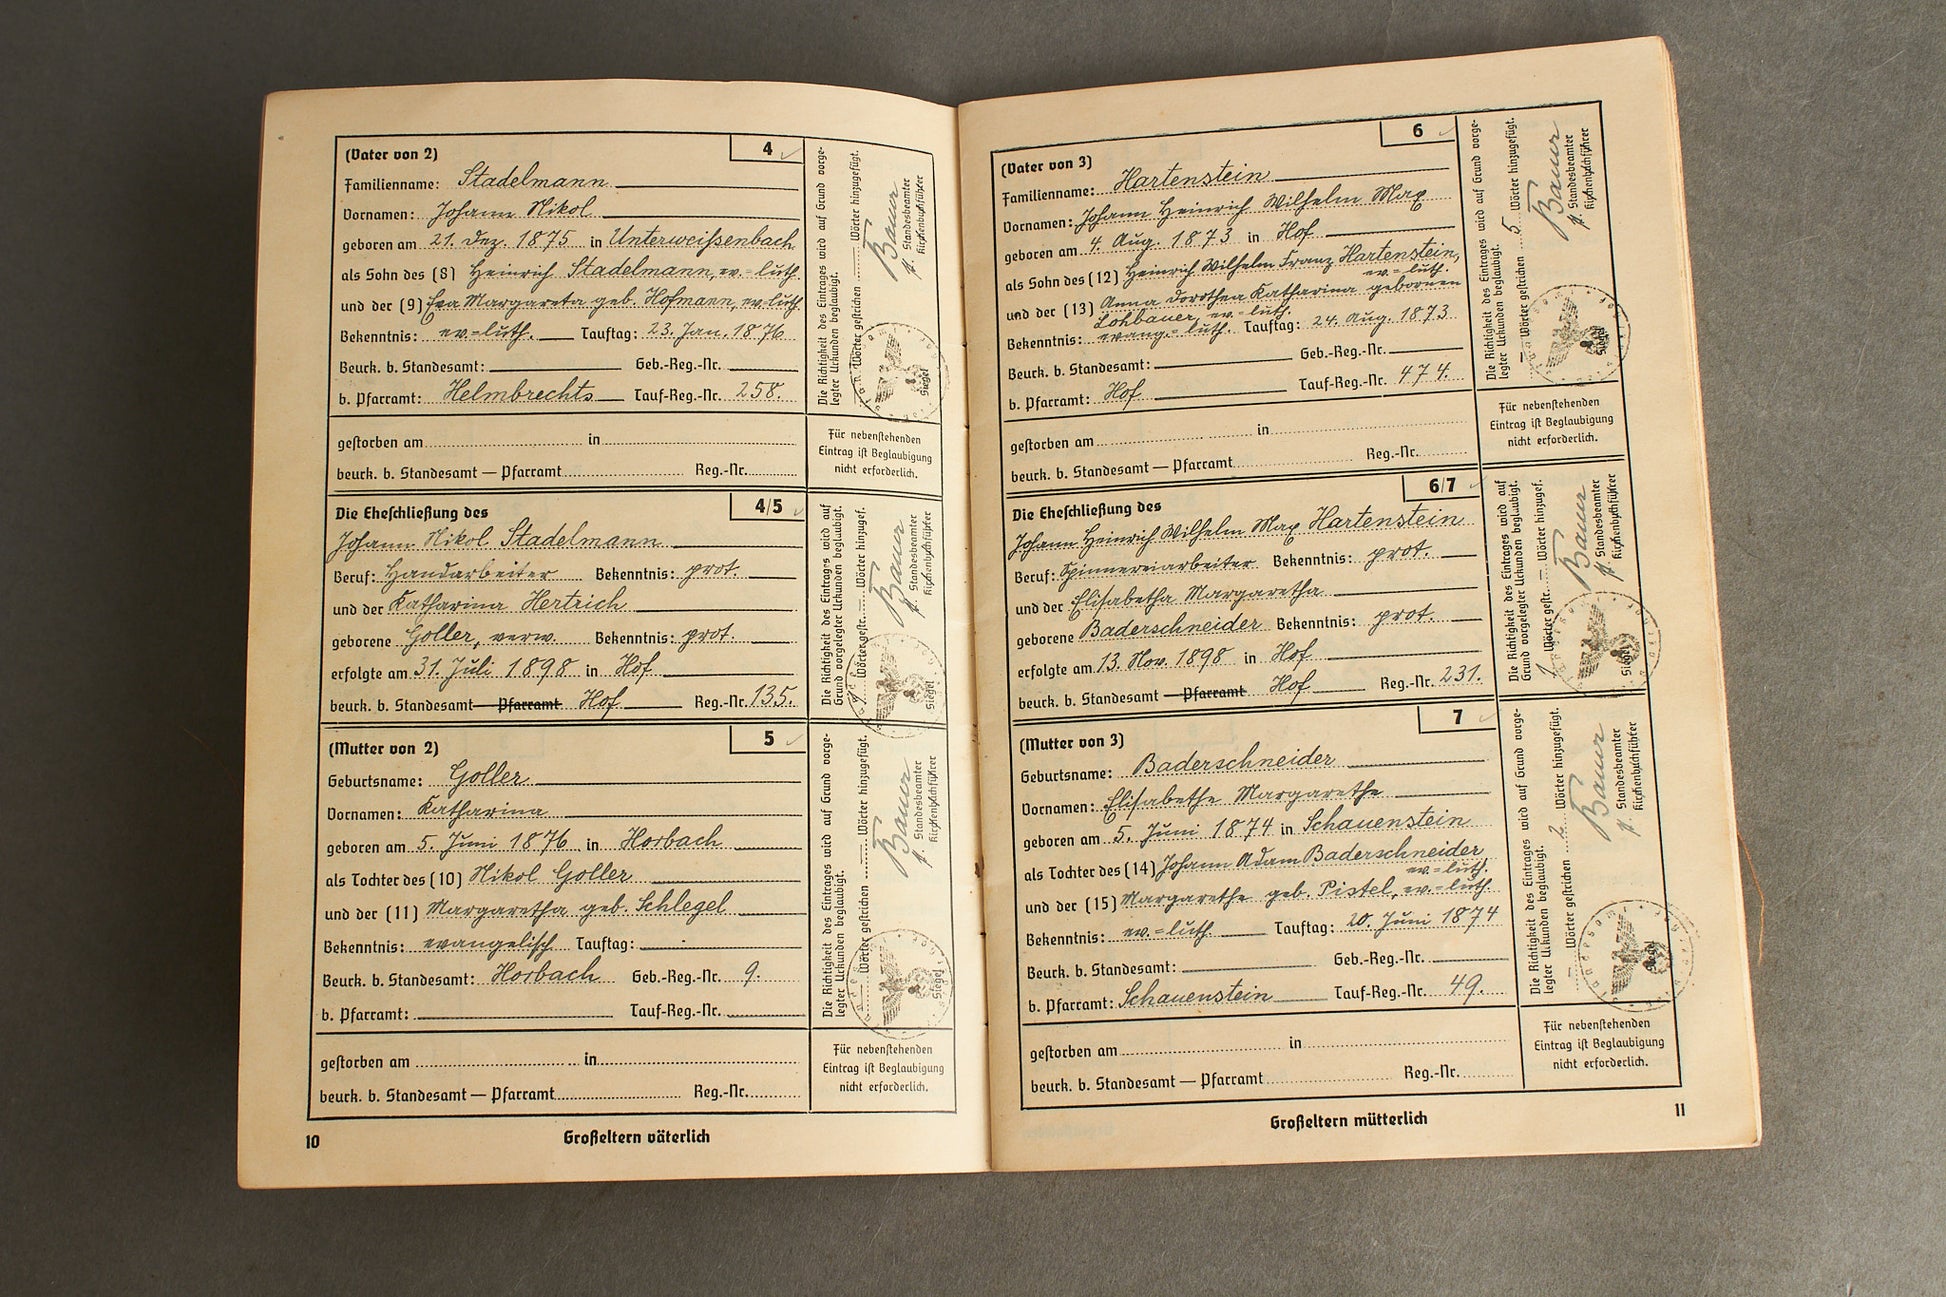 4
(Vater von 2)
Familienname: Stadelmann
Vornamen: Johann Nikol
geboren am 21. Dez. 1875 in Unterweißenbach
als Sohn des (8) Heinrich Stadelmann, ev.=luth.
und der (9) Eva Margareta geb. Hofmann, ev=luth.
Bekenntnis: ev=luth. Tauftag: 23. Jan. 1876
Beurk. b. Standesamt: Geb.-Reg.-Nr.
b. Pfarramt: Helmbrechts Tauf-Reg.-Nr. 258.
gestorben am in
beurk. b. Standesamt — Pfarramt Reg.-Nr.
Die Richtigkeit des Eintrages wird auf Grund vorge-
legter Urkunden beglaubigt.
Wörter gestrichen Wörter hinzugefügt.
Bauer
Standesbeamter
Kirchenbuchführer
Siegel
Für nebenstehenden
Eintrag ist Beglaubigung
nicht erforderlich.
4/5
Die Eheschließung des
Johann Nikol Stadelmann
Beruf: Handarbeiter Bekenntnis: prot.
und der Katharina Hertrich
geborene Goller, verw. Bekenntnis: prot.
erfolgte am 31. Juli 1898 in Hof
beurk. b. Standesamt — Pfarramt Hof Reg.-Nr. 135.
Die Richtigkeit des Eintrages wird auf
Grund vorgelegter Urkunden beglaubigt.
Wörter gestr. Wörter hinzugef.
Bauer
Standesbeamter
Kirchenbuchführer
Siegel
5
(Mutter von 2)
Geburtsname: Goller
Vornamen: Katharina
geboren am 5. Juni 1876 in Horbach
als Tochter des (10) Nikol Goller
und der (11) Margaretha geb. Schlegel
Bekenntnis: evangelisch Tauftag:
Beurk. b. Standesamt: Horbach Geb.-Reg.-Nr. 9.
b. Pfarramt: Tauf-Reg.-Nr.
gestorben am in
beurk. b. Standesamt — Pfarramt Reg.-Nr.
Die Richtigkeit des Eintrages wird auf Grund vorge-
legter Urkunden beglaubigt.
Wörter gestrichen Wörter hinzugefügt.
Bauer
Standesbeamter
Kirchenbuchführer
Siegel
Für nebenstehenden
Eintrag ist Beglaubigung
nicht erforderlich.
10 Großeltern väterlich
6
(Vater von 3)
Familienname: Hartenstein
Vornamen: Johann Heinrich Wilhelm Max
geboren am 4. Aug. 1873 in Hof
als Sohn des (12) Heinrich Wilhelm Franz Hartenstein,
ev.=luth.
und der (13) Anna Dorothea Katharina gebornen
Lohbauer, ev.=luth.
Bekenntnis: evang.=luth. Tauftag: 24. Aug. 1873
Beurk. b. Standesamt: Geb.-Reg.-Nr.
b. Pfarramt: Hof Tauf-Reg.-Nr. 474.
gestorben am in
beurk. b. Standesamt — Pfarramt Reg.-Nr.
Die Richtigkeit des Eintrages wird auf Grund vorge-
legter Urkunden beglaubigt.
Wörter gestrichen 5 Wörter hinzugefügt.
Bauer
Standesbeamter
Kirchenbuchführer
Siegel
Für nebenstehenden
Eintrag ist Beglaubigung
nicht erforderlich.
6/7
Die Eheschließung des
Johann Heinrich Wilhelm Max Hartenstein
Beruf: Spinnereiarbeiter Bekenntnis: prot.
und der Elisabetha Margaretha
geborene Baderschneider Bekenntnis: prot.
erfolgte am 13. Nov. 1898 in Hof
beurk. b. Standesamt — Pfarramt Hof Reg.-Nr. 231.
Die Richtigkeit des Eintrages wird auf
Grund vorgelegter Urkunden beglaubigt.
1 Wörter gestr. Wörter hinzugef.
Bauer
Standesbeamter
Kirchenbuchführer
Siegel
7
(Mutter von 3)
Geburtsname: Baderschneider
Vornamen: Elisabethe Margarethe
geboren am 5. Juni 1874 in Schauenstein
als Tochter des (14) Johann Adam Baderschneider
ev.=luth.
und der (15) Margarethe geb. Pistel, ev.=luth.
Bekenntnis: ev.=luth. Tauftag: 20. Juni 1874
Beurk. b. Standesamt: Geb.-Reg.-Nr.
b. Pfarramt: Schauenstein Tauf-Reg.-Nr. 49.
gestorben am in
beurk. b. Standesamt — Pfarramt Reg.-Nr.
Die Richtigkeit des Eintrages wird auf Grund vorge-
legter Urkunden beglaubigt.
Wörter gestrichen 2 Wörter hinzugefügt.
Bauer
Standesbeamter
Kirchenbuchführer
Siegel
Für nebenstehenden
Eintrag ist Beglaubigung
nicht erforderlich.
Großeltern mütterlich 11